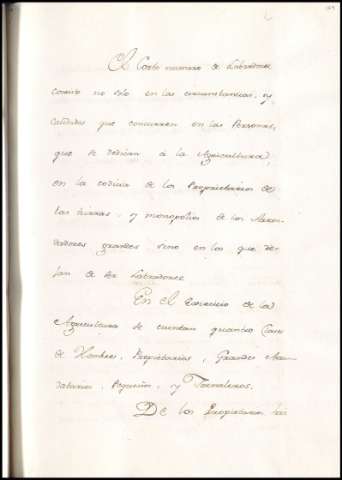 El Corto numero de Labradores
consiste no solo en las circunstancias, y
calidades que concurren en las Personas,
que se dedican à la Agricultura,
en la codicia de los Proprietarios de
las tierras, y monopolios de los Arren-
dadores grandes sino en los que de-
jan de ser Labradores
En el Exercicio de la
Agricultura se cuentan quatro Clases
de Hombres, Proprietarios, Grandes Arren-
datarios, Pequeños, y Jornaleros.
De los Proprietarios